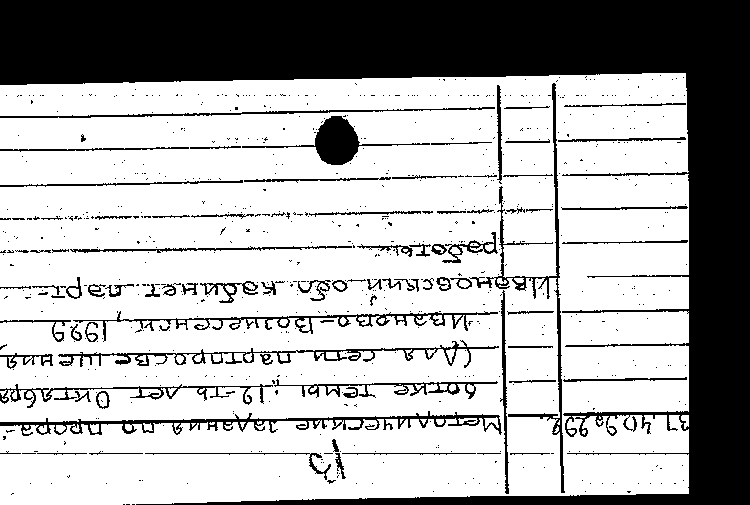 37.40.9.292
Методические задания по прора-
ботке темы "12-ть лет Октября
(Для сети партпросвещения,
Иваново-Вознесенск, 1929
Ивановский обл кабинет парт-
работы.